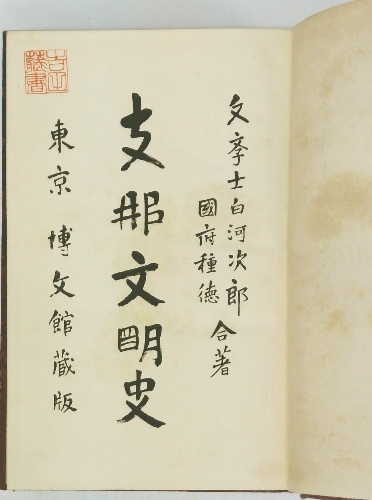 文学士白河次郎
國府種德 合著
支那文明史
東京 博文館藏版